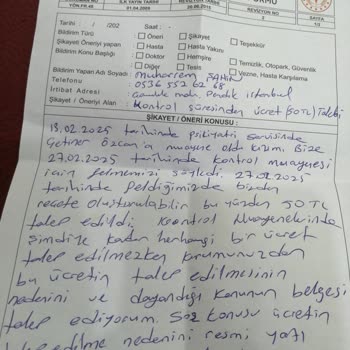 YÖN.FR.45
İLK YAYIN TARİHİ
01.04.2009
REVİZYON TARİHİ
REVİZYON NO
2
SAYFA
1/2
Tarihi : / /202 Saat : -
Bildirim Türü
Öneri
Şikayet
Teşekkür
Şikayet/ Öneriyi yapan
Hasta
Hasta Yakını
Bildirim Konu Başlığı
Doktor
Hemşire
Temizlik, Otopark, Güvenlik
Diğer
Tesis
Vezne, Hasta Karşılama
Bildirim Yapan Adı Soyadı : muharrem ŞAHİN
Telefonu : 0536 552 62 68
İrtibat Adresi : mah Pendik istanbul
Şikayet / Öneriyi Alan : Kontrol süresinden ücret (50 TL) Talebi
ŞİKAYET / ÖNERİ KONUSU :
18.02.2025 tarihinde psikiyatri servisinde
Çetiner Özcan'a muayne oldu kızım. Bize
27.02.2025 tarihinde kontrol muaynesi
için gelmemizi söyledi. 27.02.2025
tarihinde geldiğimizde bizden
recete oluşturulabilir bu yüzden 50 TL
talep edildi. Kontrol Muaynelerinde
şimdiye kadar herhangi bir ücret
talep edilmezken kurumunuzdan
bu ücretin talep edilmesinin
nedenini ve dayandığı konunun belgesi
talep ediyorum. Söz konusu ücretin
talep edilme nedenini resmi yazı